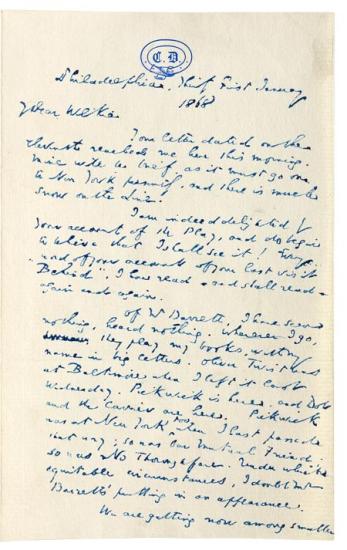 C.D.
Philadelphia, Thirty First January
1868
My Dear Wilkie.
Your letter dated on the
eleventh reached me here this morning.
must go on
to New York and there is much
snow on the line.
I am indeed delighted by
your account of the Play, and do begin
to believe that I shall see it!
and of your account of your last visit
Behind", I have read and shall read
again and again.
Of W Barrett, I have seen
nothing, heard nothing. Wherever I go,
they play my books, with my
name in big letters. Oliver Twist was
at Baltimore when I left it last
Wednesday. Pickwick is here, and Dot
and the Carrier are here. Pickwick
was at New York too when I last passed
that way; so was Our Mutual Friend;
so was No Thoroughfare. Under which
equitable circumstances, I doubt Mr
Barrett's putting in an appearance.
We are getting now among smaller